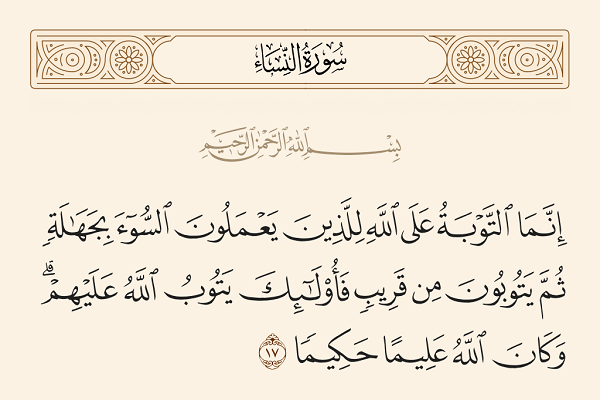 سُورَةُ النِّسَاءِ
بِسْمِ ٱللَّهِ ٱلرَّحْمَٰنِ ٱلرَّحِيمِ
إِنَّمَا ٱلتَّوْبَةُ عَلَى ٱللَّهِ لِلَّذِينَ يَعْمَلُونَ ٱلسُّوٓءَ بِجَهَٰلَةٍ
ثُمَّ يَتُوبُونَ مِن قَرِيبٍ فَأُو۟لَٰٓئِكَ يَتُوبُ ٱللَّهُ عَلَيْهِمْ ۗ
وَكَانَ ٱللَّهُ عَلِيمًا حَكِيمًا ١٧